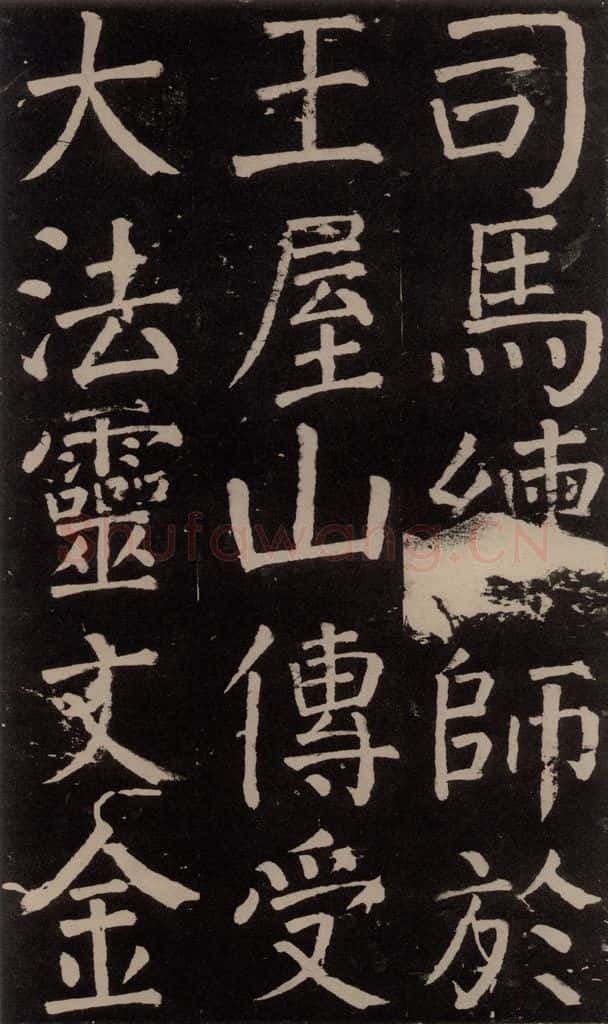 司馬練師於
王屋山傳受
大法靈文金
Shufawang.CN